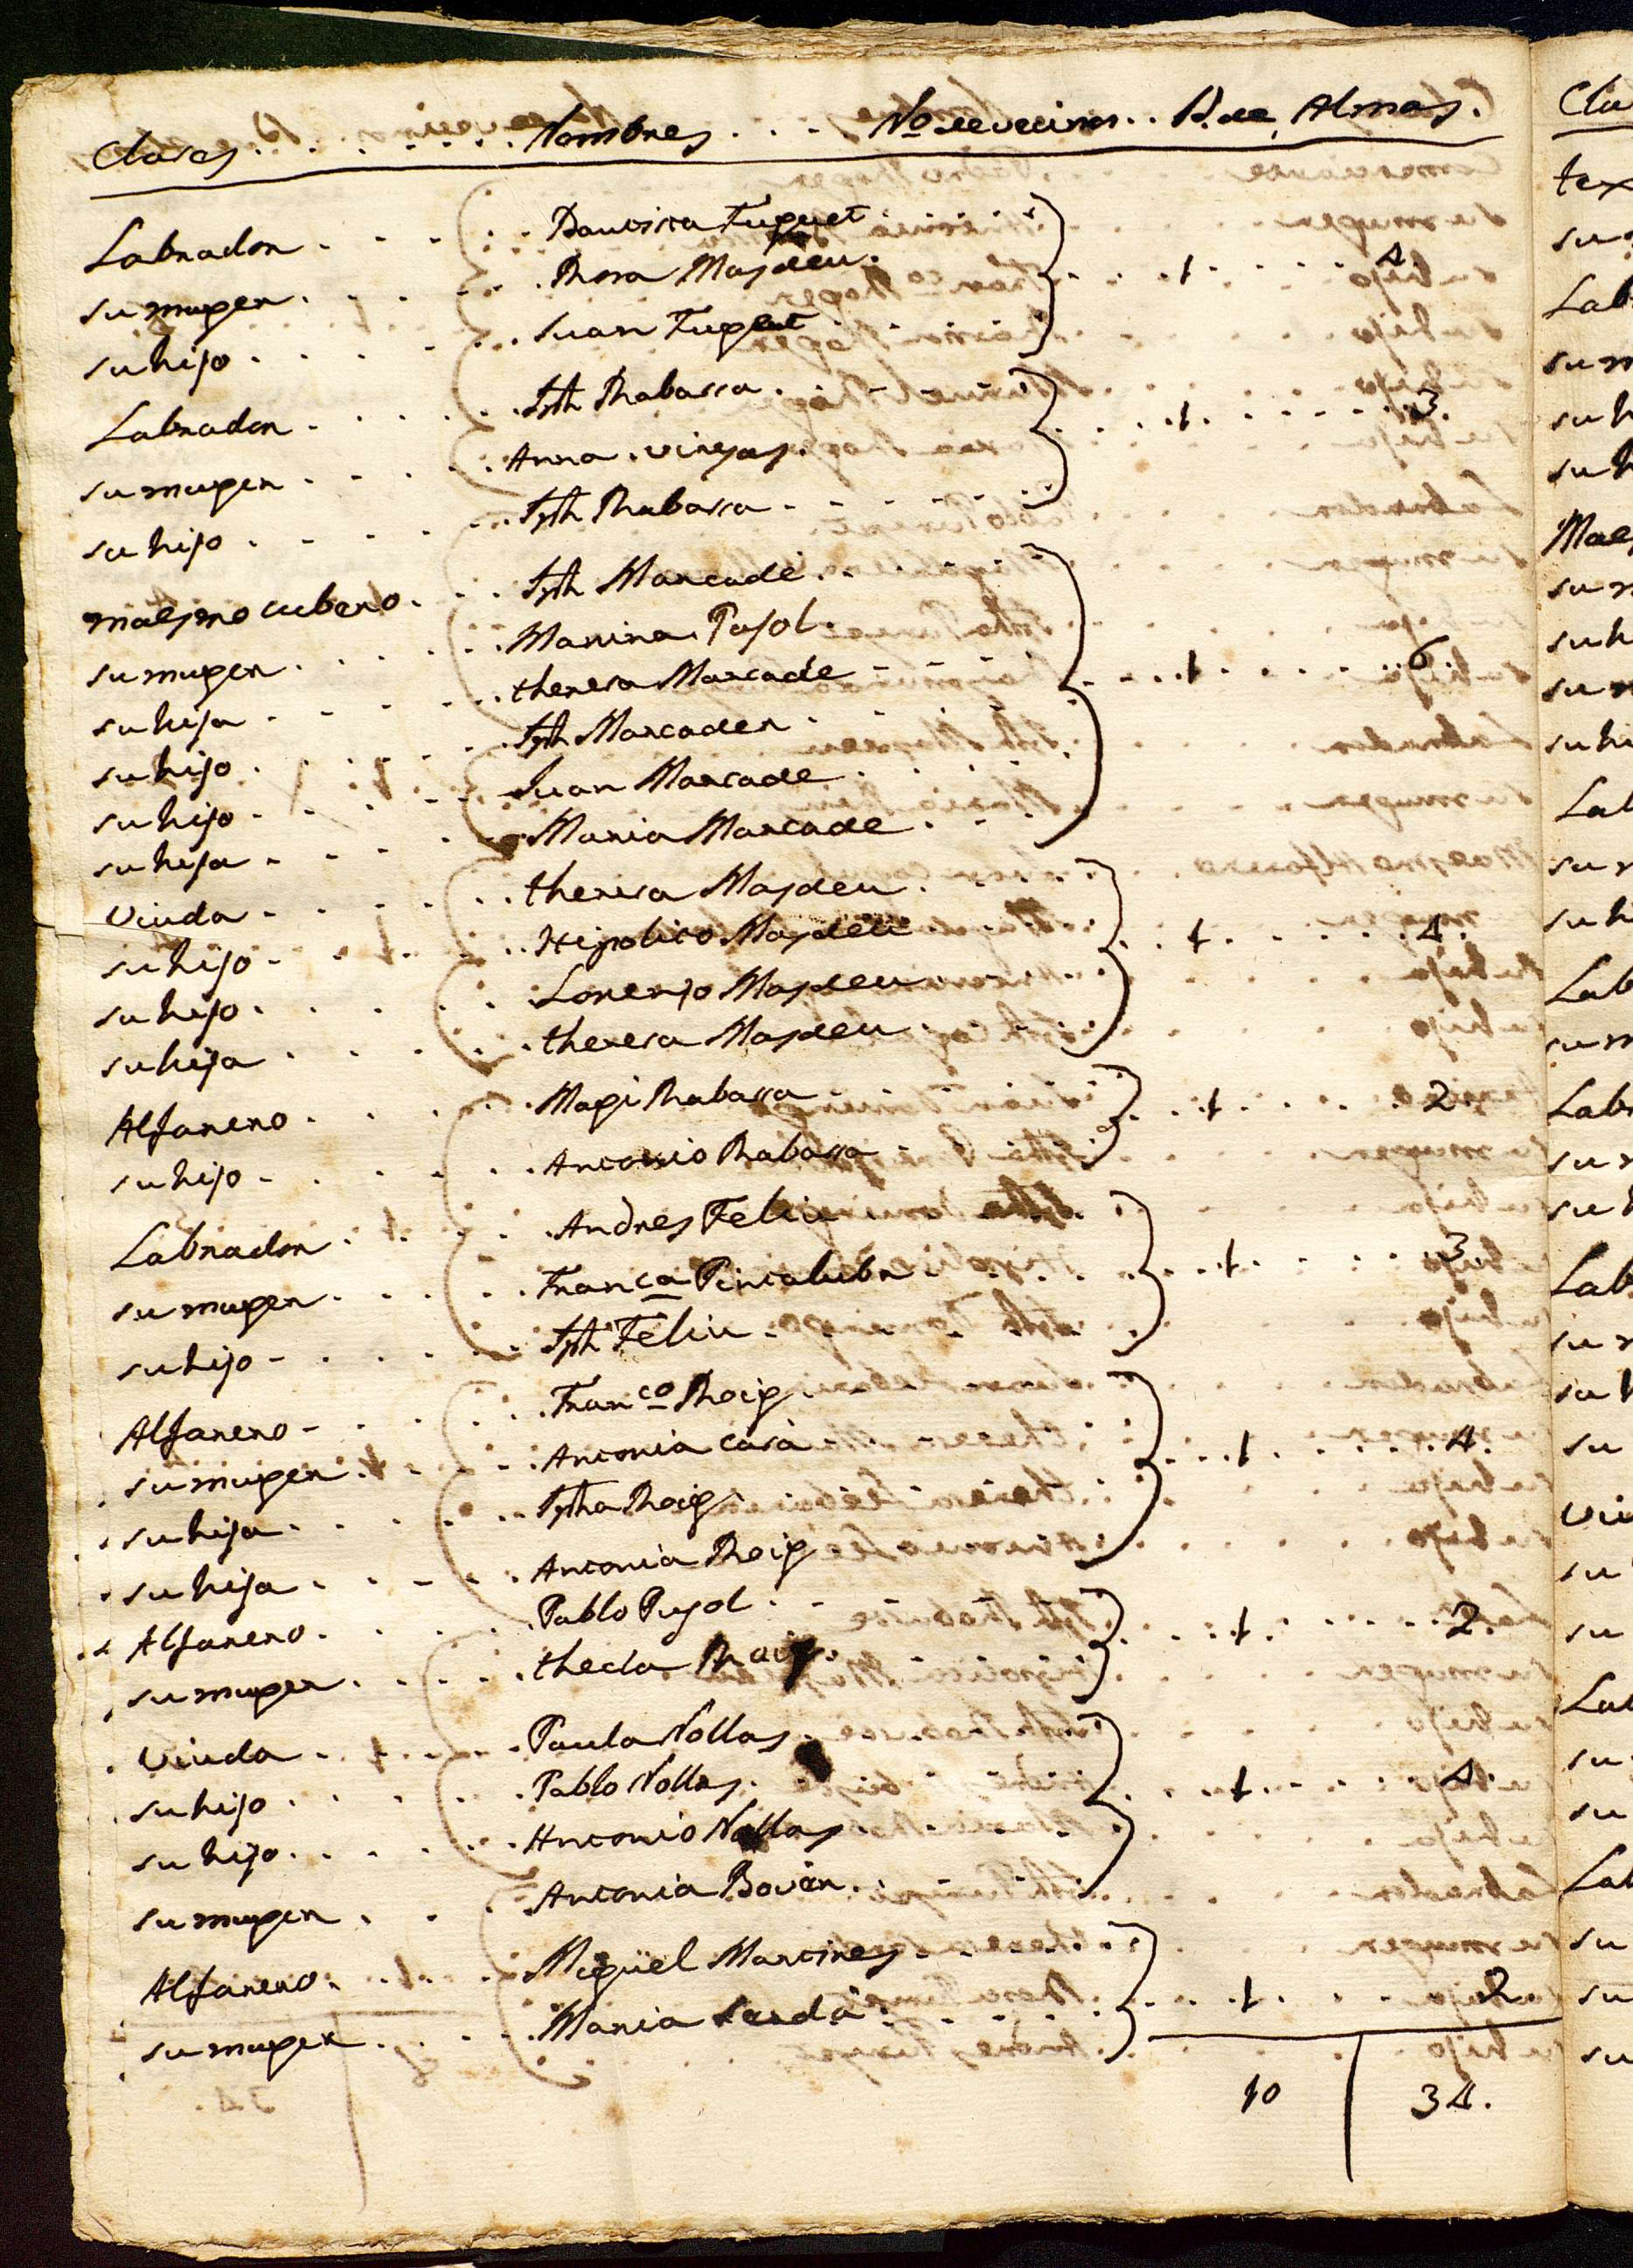 Clases. Nombres. No de vecinos. N. de Almas.
Labrador. Bautista Fuguet
su muger. Rosa Masdeu. 1. 4
su hijo. Juan Fuguet
Labrador. Jph Rabassa. 1. 3.
su muger. Anna vinyas.
su hijo. Jph Rabassa.
maestro cubero. Jph Marcadé.
su muger. Marina Pujol.
su hija. theresa Marcade 1. 6
su hijo. Jph Marcader
su hijo. Juan Marcade.
su hija. Maria Marcade.
Viuda. theresa Masdeu.
su hijo. Hipolito Masdeu 1. 4.
su hijo. Lorenzo Masdeu
su hija. theresa Masdeu.
Alfarero. Magi Rabassa. 1. 2.
su hijo. Antonio Rabassa.
Labrador. Andres Feliu
su muger. Franca Pintaluba. 1. 3.
su hijo. Jph Feliu.
Alfarero. Franco Roig.
su muger. Antonia casa. 1. 4.
su hija. Jpha Roig.
su hija. Antonia Roig
Alfarero. Pablo Pujol. 1. 2.
su muger. thecla Roig.
Viuda. Paula Nollas.
su hijo. Pablo Nollas. 1. 4.
su hijo. Antonio Nollas
su muger. Antonia Bover.
Alfarero. Miguel Martines.
su muger. Maria Serdá. 1. 2.
10 34.
Cla
tex
su
Lab
su m
su h
su h
Maes
su m
su h
su m
su hi
Lab
su m
su h
Lab
su m
Lab
su m
su h
Lab
su m
su h
su
Viu
su
su
Lab
su
su
Lab
su
su
su